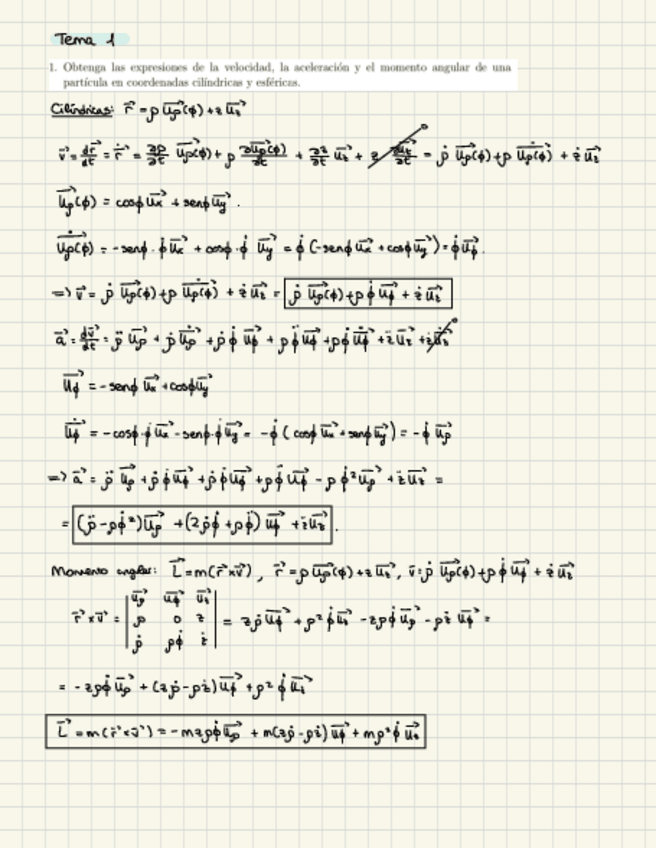 Tema 1
1. Obtenga las expresiones de la velocidad, la aceleración y el momento angular de una
partícula en coordenadas cilíndricas y esféricas.
Cilíndricas: r⃗ = ρ u⃗ρ(ϕ) + z u⃗z
v⃗ = dr⃗/dt = ṙ⃗ = ∂ρ/∂t u⃗ρ(ϕ) + ρ ∂u⃗ρ(ϕ)/∂t + ∂z/∂t u⃗z + z ∂u⃗z/∂t→0 = ρ̇ u⃗ρ(ϕ) + ρ u̇⃗ρ(ϕ) + ż u⃗z
u⃗ρ(ϕ) = cosϕ u⃗x + senϕ u⃗y.
u̇⃗ρ(ϕ) = -senϕ · ϕ̇ u⃗x + cosϕ · ϕ̇ u⃗y = ϕ̇ (-senϕ u⃗x + cosϕ u⃗y) = ϕ̇ u⃗ϕ.
=> v⃗ = ρ̇ u⃗ρ(ϕ) + ρ u̇⃗ρ(ϕ) + ż u⃗z = ρ̇ u⃗ρ(ϕ) + ρ ϕ̇ u⃗ϕ + ż u⃗z
a⃗ = dv⃗/dt = ρ̈ u⃗ρ + ρ̇ u̇⃗ρ + ρ̇ ϕ̇ u⃗ϕ + ρ ϕ̈ u⃗ϕ + ρ ϕ̇ u̇⃗ϕ + z̈ u⃗z + ż u̇⃗z→0
u⃗ϕ = -senϕ u⃗x + cosϕ u⃗y
u̇⃗ϕ = -cosϕ · ϕ̇ u⃗x - senϕ · ϕ̇ u⃗y = -ϕ̇ (cosϕ u⃗x + senϕ u⃗y) = -ϕ̇ u⃗ρ
=> a⃗ = ρ̈ u⃗ρ + ρ̇ ϕ̇ u⃗ϕ + ρ̇ ϕ̇ u⃗ϕ + ρ ϕ̈ u⃗ϕ - ρ ϕ̇² u⃗ρ + z̈ u⃗z =
= (ρ̈ - ρϕ̇²) u⃗ρ + (2ρ̇ϕ̇ + ρϕ̈) u⃗ϕ + z̈ u⃗z.
Momento angular: L⃗ = m(r⃗×v⃗), r⃗ = ρ u⃗ρ(ϕ) + z u⃗z, v⃗ = ρ̇ u⃗ρ(ϕ) + ρ ϕ̇ u⃗ϕ + ż u⃗z
u⃗ρ u⃗ϕ u⃗z
r⃗×v⃗ = | ρ 0 z | = zρ̇ u⃗ϕ + ρ² ϕ̇ u⃗z - zρϕ̇ u⃗ρ - ρż u⃗ϕ =
ρ̇ ρϕ̇ ż
= -zρϕ̇ u⃗ρ + (zρ̇ - ρż) u⃗ϕ + ρ² ϕ̇ u⃗z
L⃗ = m(r⃗×v⃗) = -mzρϕ̇ u⃗ρ + m(zρ̇ - ρż) u⃗ϕ + mρ² ϕ̇ u⃗z